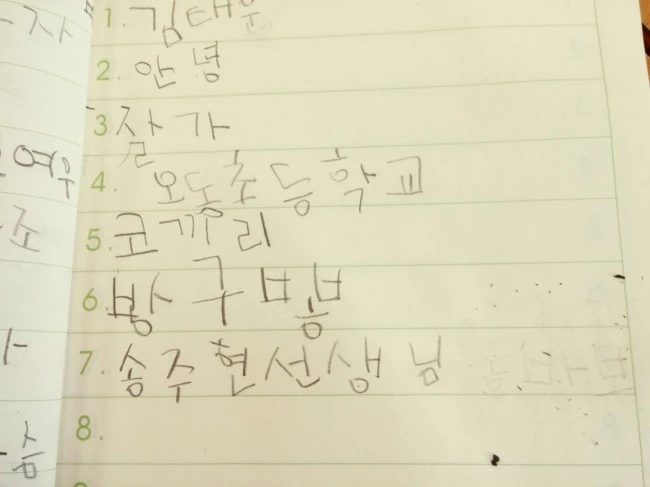 1. 김태우
2. 안녕
3 잘가
4. 오동초등학교
5. 코끼리
6. 방구
7. 송주현선생님
8.
자
여우
조